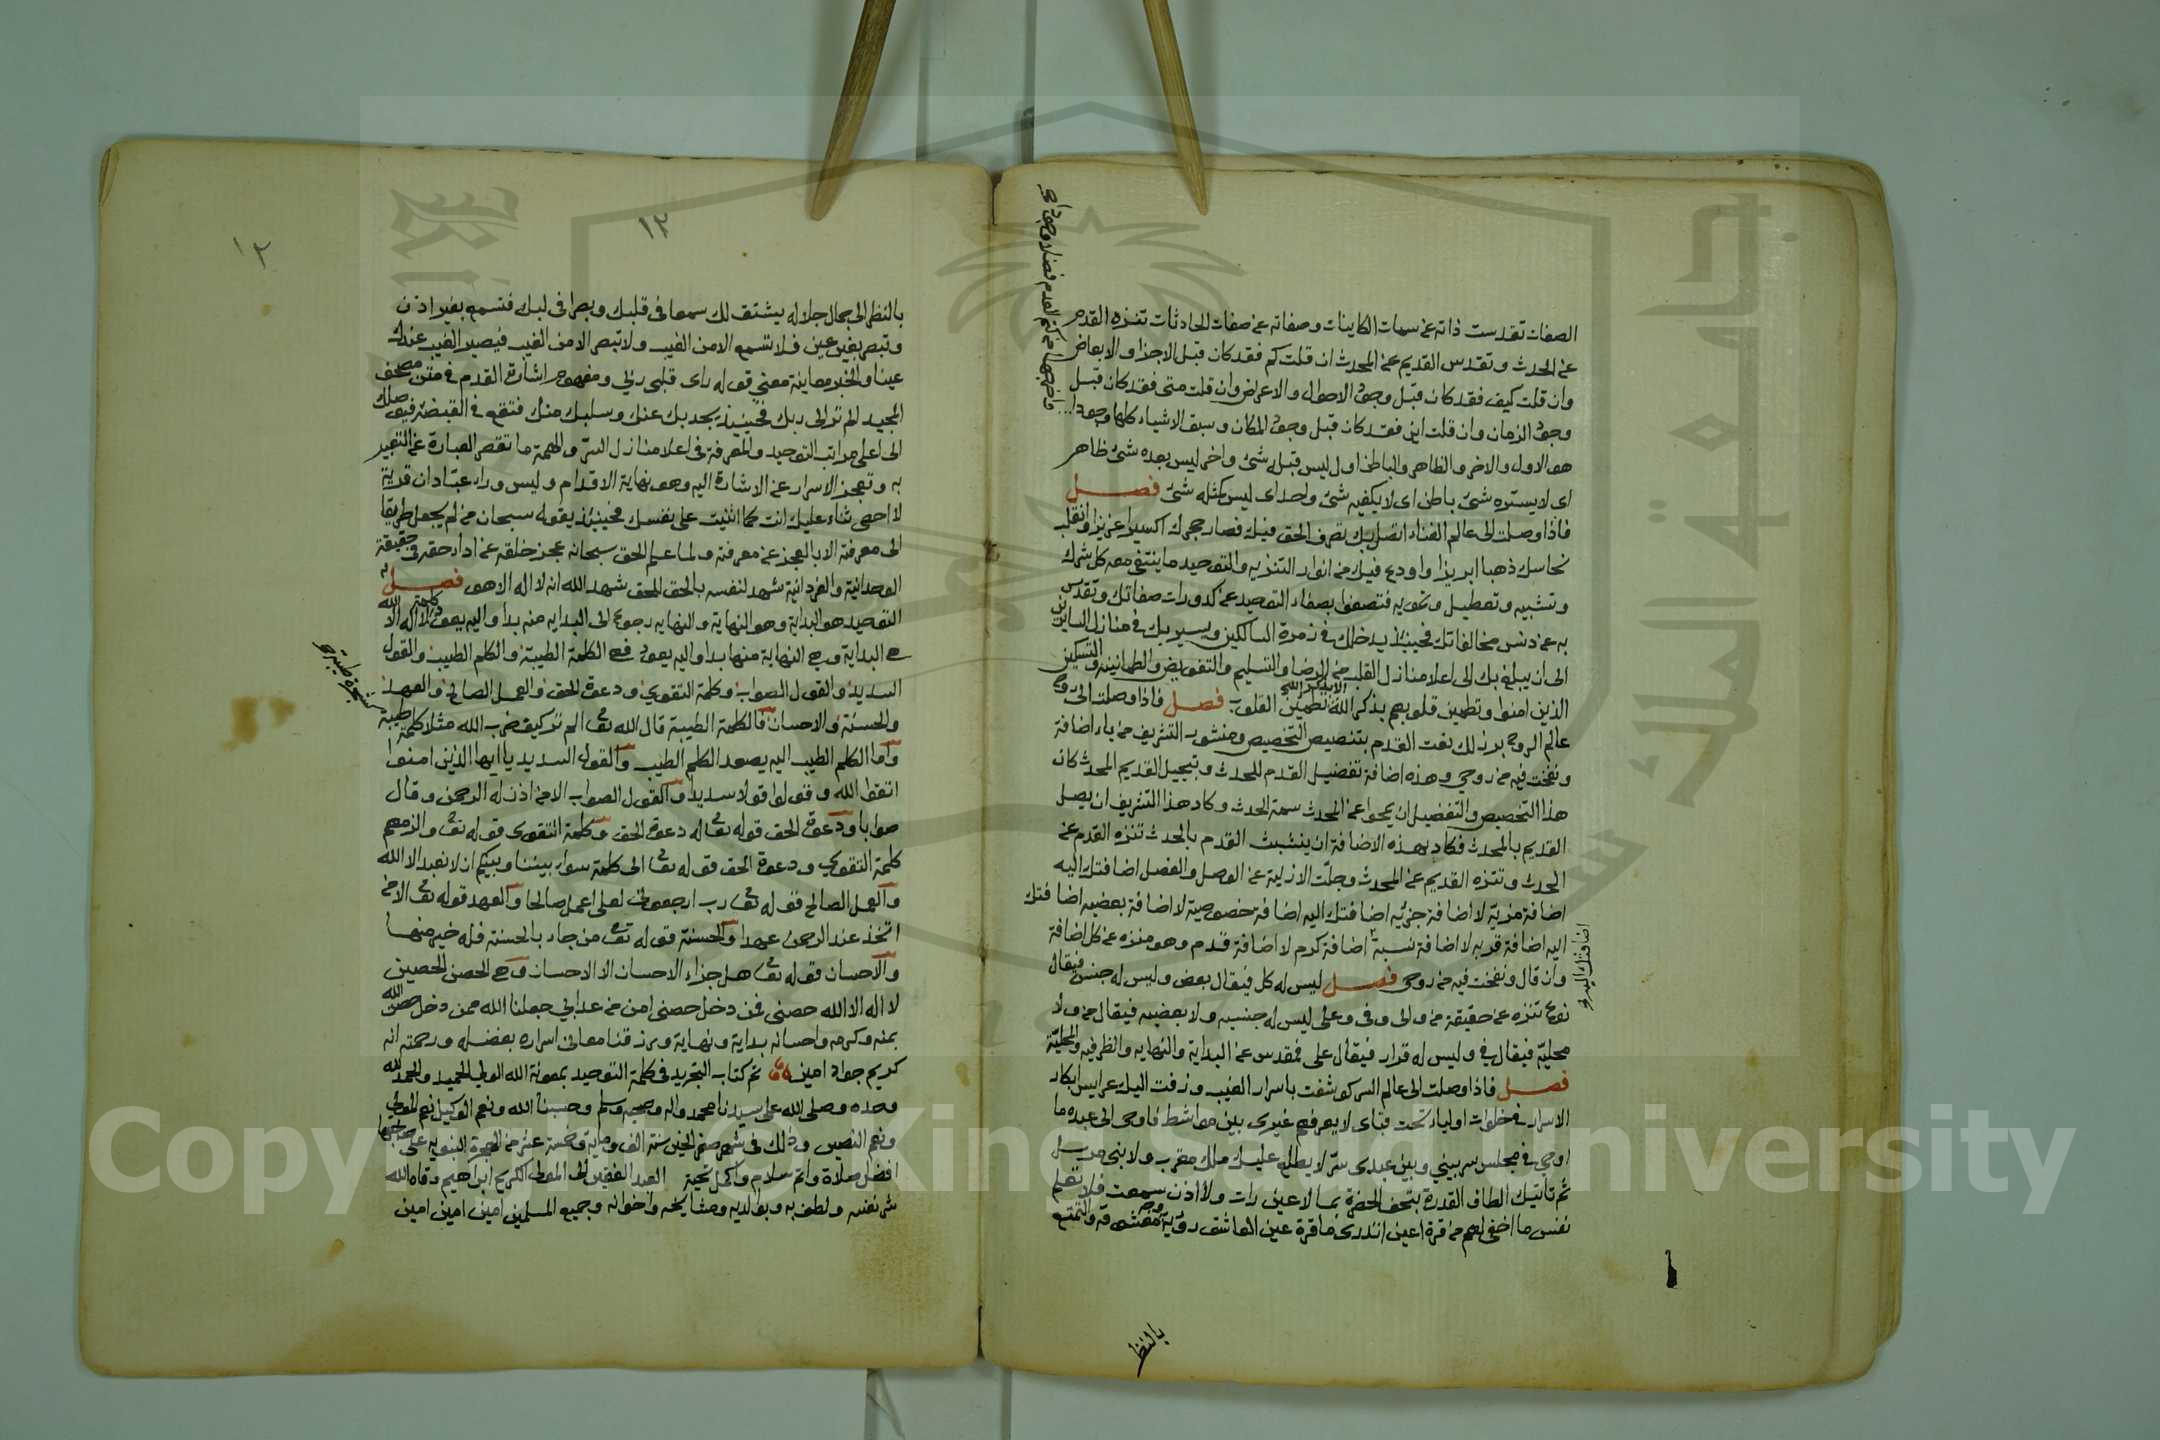 الصفات تقدست ذاته عن سمات الكاينات وصفاته عن صفات الحادثات تنزه القدم
عن الحدث وتقدس القديم عن المحدث ان قلت كم فقد كان قبل الاجزا والابعاض
وان قلت كيف فقد كان قبل وجود الاحوال والاعراض وان قلت متى فقد كان قبل
وجود الزمان وان قلت اين فقد كان قبل وجود المكان وسبق الاشياء كلها وجودا
هو الاول والاخر والظاهر والباطن اول ليس قبله شئ واخر ليس بعده شئ ظاهر
اى لا يستره شئ باطن اى لا يكفيه شئ واحد اى ليس كمثله شئ فصل
فاذا وصلت الى عالم الفناء اتصل بك تصرف الحق فيك فصار حجرك اكسيرا عزيزا وانقلب
نحاسك ذهبا ابريزا واودع فيك من انوار التنزيه والتوحيد ما ينتفى معه كل شرك
وتشبيه وتعطيل وتمويه فتصفوا بصفاء التوحيد عن كدورات صفاتك وتقدس
به عن دنس مخالفاتك فحينئذ يدخلك فى زمرة السالكين ويسير بك فى منازل السايرين
الى ان يبلغ بك الى اعلا منازل القلب من الرضا والتسليم والتفويض والطمانينة والتسكين
الذين امنوا وتطمين قلوبهم بذكر الله الا بذكر الله تطمين القلوب فصل فاذا وصلت الى روح
عالم الروح برز لك نعت القدم بتنصيص التخصيص ومنشور التشريف من ياء اضافة
ونفخت فيه من روحي وهذه اضافة تفضيل القدم للحدث وتبجيل القديم المحدث كاد
هذا التخصيص والتفضيل ان يمحوا عن المحدث سمة الحدث وكاد هذا التشريف ان يصل
القديم بالمحدث فكاد بهذه الاضافة ان يتشبث القدم بالحدث تنزه القدم عن
الحدث وتنزه القديم عن المحدث وجلت الازلية عن الوصل والفصل اضافتك اليه
اضافة مزية لا اضافة جزئيه اضافتك اليه اضافة خصوصية لا اضافة بعضيه اضافتك
اليه اضافة قربه لا اضافة نسبة اضافة كرم لا اضافة قدم وهو منزه عن كل اضافة
وان قال ونفخت فيه من روحي فصل ليس له كل فيقال بعض وليس له جنس فيقال
نوع تنزه عن حقيقة من والى وفى وعلى ليس له جنسيه ولا بعضيه فيقال من ولا
محليّة فيقال فى وليس له قرار فيقال على فتقدس عن البداية والنهايه والظرفيه والمحليّة
فصل فاذا وصلت الى عالم السر كوشفت باسرار الغيب وزفت اليك عرايس ابكار
الاسرار فى خلوات اولياء تحت قبتاى لا يعرفهم غيرى بين مواشط فاوحى الى عبده ما
اوحى فى مجلس سر بيني وبين عبدى سر لا يطلع عليه ملك مقرب ولا نبى مرسل
ثم تاتيك الطاف القدرة بتحف الحضرة بما لا عين رات ولا اذن سمعت فلا تعلم
نفس ما اخفى لهم من قرة اعين اتدرى ما قرة عين العاشق رؤية معشوقه والتمتع
بالنظ
١٢
١٢
بالنظر الى جمال جلاله يشتق لك سمعا فى قلبك وبصرا فى لبك فتسمع بغير اذن
وتبصر بغير عين فلا تسمع الا من الغيب ولا تبصر الا من الغيب فيصير الغيب عندك
عينا والخبر معاينة معني قوله راى قلبى ربي ومفهوم اشارة القدم فى متن مصحف
المجيد الم تر الى ربك فحينئذ يجد بك عنك وسلبك منك فتقع فى القبضة فيوصلك
الى اعلى مراتب التوحيد والمعرفة فى اعلا منازل السر والهمة ما تقصر العبارة عن التعبير
به وتعجز الاسرار عن الاشارة اليه وهو نهاية الاقدام وليس وراء عبّادان قرية
لا احصى ثناء عليك انت كما اثنيت على نفسك فحينئذ يقول سبحان من لم يجعل طريقا
الى معرفته الا بالعجز عن معرفته ولما علم الحق سبحانه عجز خلقه عن اداء حقه فى حقيقة
الوحدانية والفردانية شهد لنفسه بالحق للحق شهد الله انه لا اله الا هو فصل
التوحيد هو البداية وهو النهاية والنهايه رجوع الى البدايه منه بدا واليه يعود كلمة لا اله الا الله
هى البداية وهى النهاية منها بدا واليه يعود فهى الكلمة الطيبة والكلم الطيب والقول
السديد والقول الصواب وكلمة التقوى ودعوة الحق والعمل الصالح والعهد
والحسنة والاحسان فالكلمة الطيبة قال الله تعا الم تر كيف ضرب الله مثلا كلمة طيبة
كشجرة طيبة
واما الكلم الطيب اليه يصعد الكلم الطيب والقول السديد يا ايها الذين امنوا
اتقوا الله وقولوا قولا سديدا والقول الصواب الا من اذن له الرحمن وقال
صوابا ودعوة الحق قوله تعا له دعوة الحق وكلمة التقوى قوله تعا والزمهم
كلمة التقوى ودعوة الحق قوله تعا الى كلمة سواء بيننا وبينكم ان لا نعبد الا الله
والعمل الصالح قوله تعا رب ارجعون لعلى اعمل صالحا والعهد قوله تعا الا من
اتخذ عند الرحمن عهدا والحسنة قوله تعا من جاء بالحسنة فله خير منها
والاحسان قوله تعا هل جزاء الاحسان الا الاحسان وهى الحصن الحصين
لا اله الا الله حصنى فمن دخل حصنى امن من عذابي جعلنا الله ممن دخل حصن الله
بمنه وكرمه واحسانه بداية ونهاية ورزقنا معانى اسراره بفضله ورحمته انه
كريم جواد امين تم كتاب التجريد فى كلمة التوحيد بمعونة الله الولي الحميد والحمد لله
وحده وصلى الله على سيدنا محمد واله وصحبه وسلم وحسبنا الله ونعم الوكيل نعم المولى
ونعم النصير وذلك فى شهر صفر الخير سنة الف ومايه وخمسة عشر من الهجرة النبويه على صاحبها
افضل صلاة واتم سلام واكمل تحية العبد الفقير الى المعطى الكريم ابراهيم وقاه الله
شر نفسه ولطف به وبوالديه ومشايخه واخوانه وجميع المسلمين امين امين امين